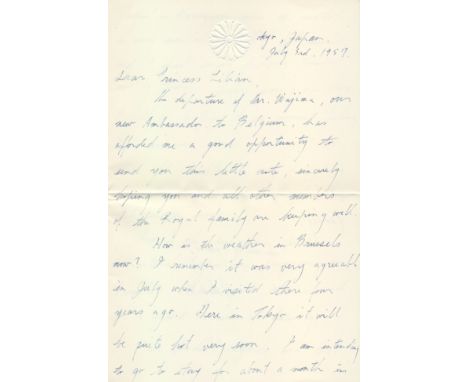 Tokyo, Japan.
July 3rd, 1957.
Dear Princess Lilian,
The departure of Mr. Wajima, our
new Ambassador to Belgium, has
afforded me a good opportunity to
send you this little note, sincerely
hoping you and all other members
of the Royal family are keeping well.
How is the weather in Brussels
now? I remember it was very agreeable
in July when I visited there four
years ago. Here in Tokyo it will
be quite hot very soon. I am intending
to go to stay for about a month in